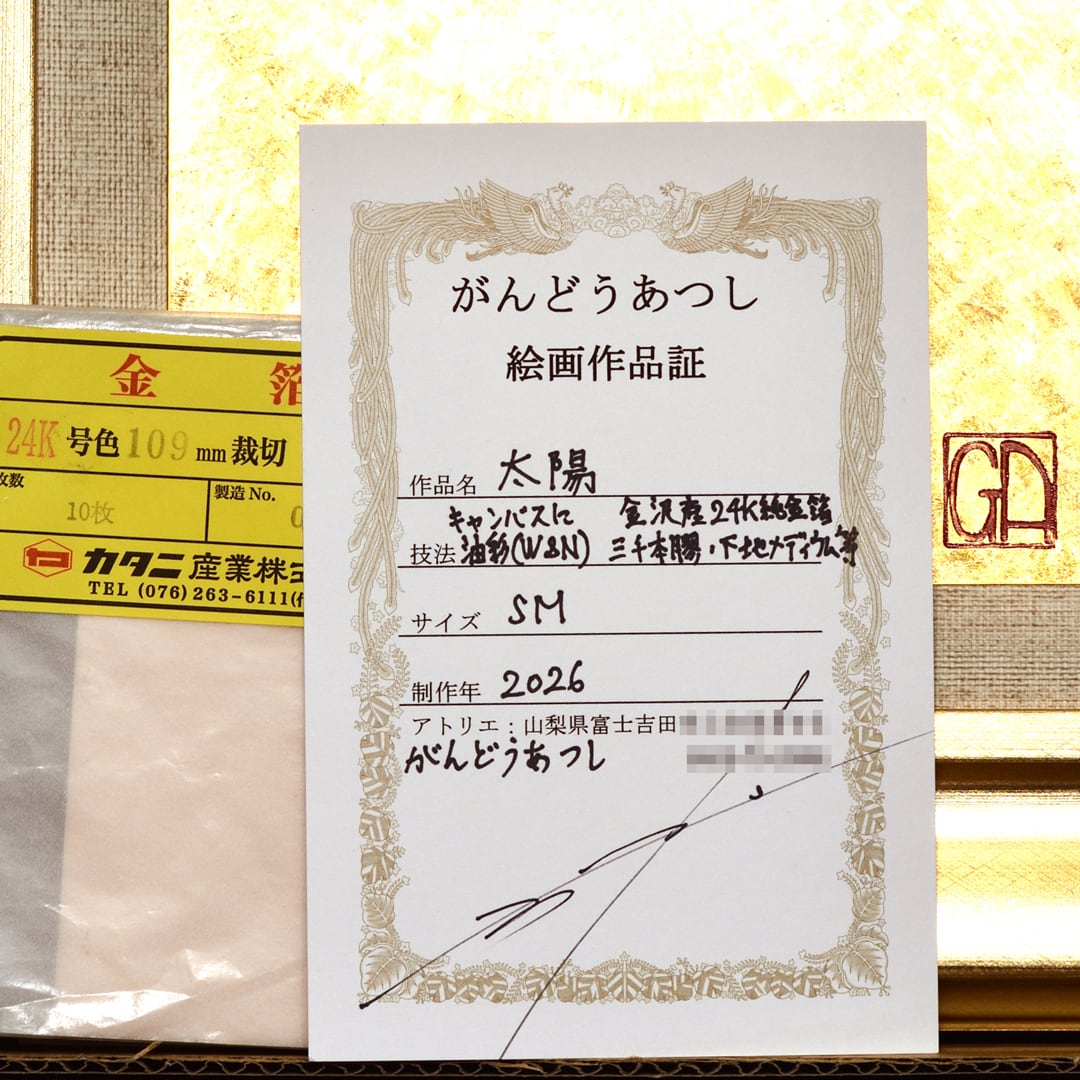 がんどうあつし
絵画作品証
作品名 太陽
キャンバスに 金沢産24K純金箔
技法 油彩(W&N) 三千本膠・下地メディウム等
サイズ SM
制作年 2026
アトリエ：山梨県富士吉田
がんどうあつし
金 箔
24K 号色 109 mm 裁切
枚数
10枚
製造 No.
カタニ産業株式
TEL (076) 263-6111
GA